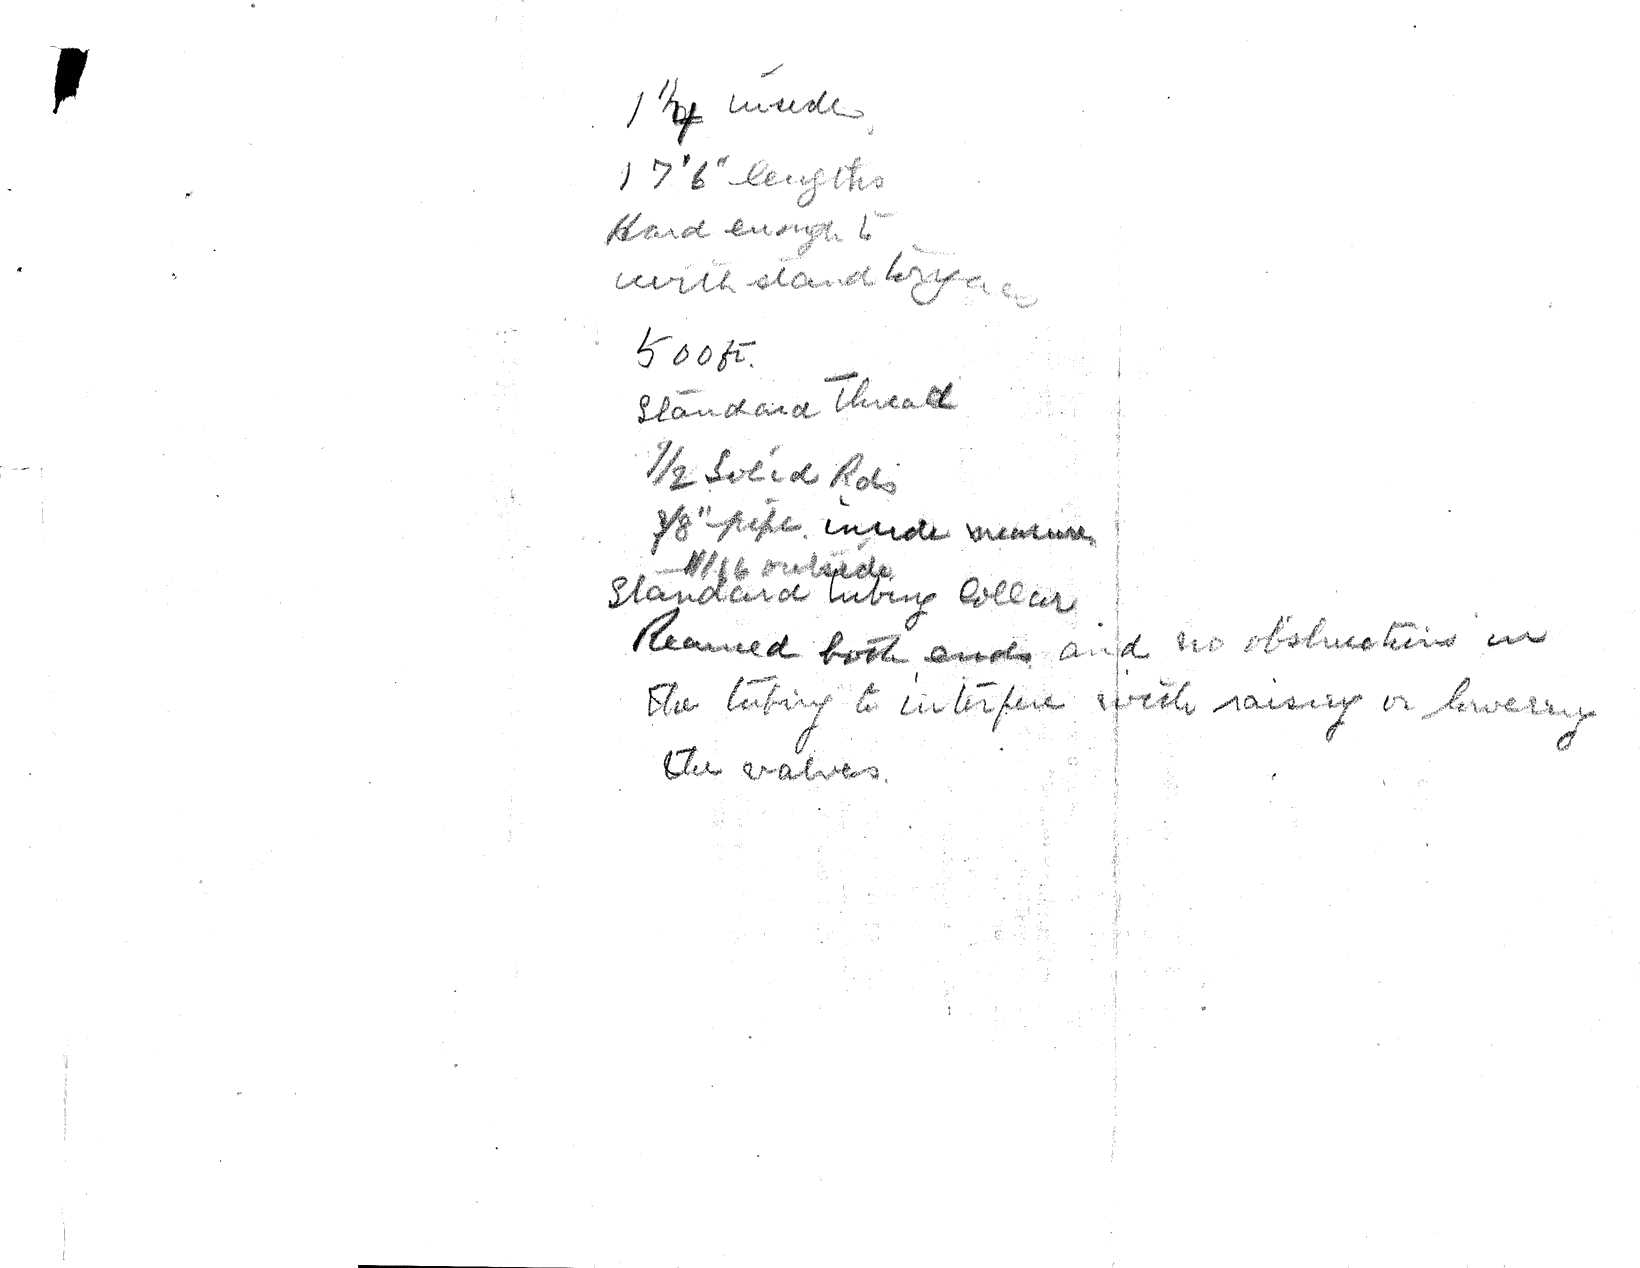 1 1/4 inside
17'6" lengths
Hard enough to
with stand
500 ft.
Standard Thread
1/2 Solid Rds
3/8" pipe. inside measure
11/16 outside
Standard tubing Collar
Reamed both ends and no obstructions in
the tubing to interfere with raising or lowering
the valves.